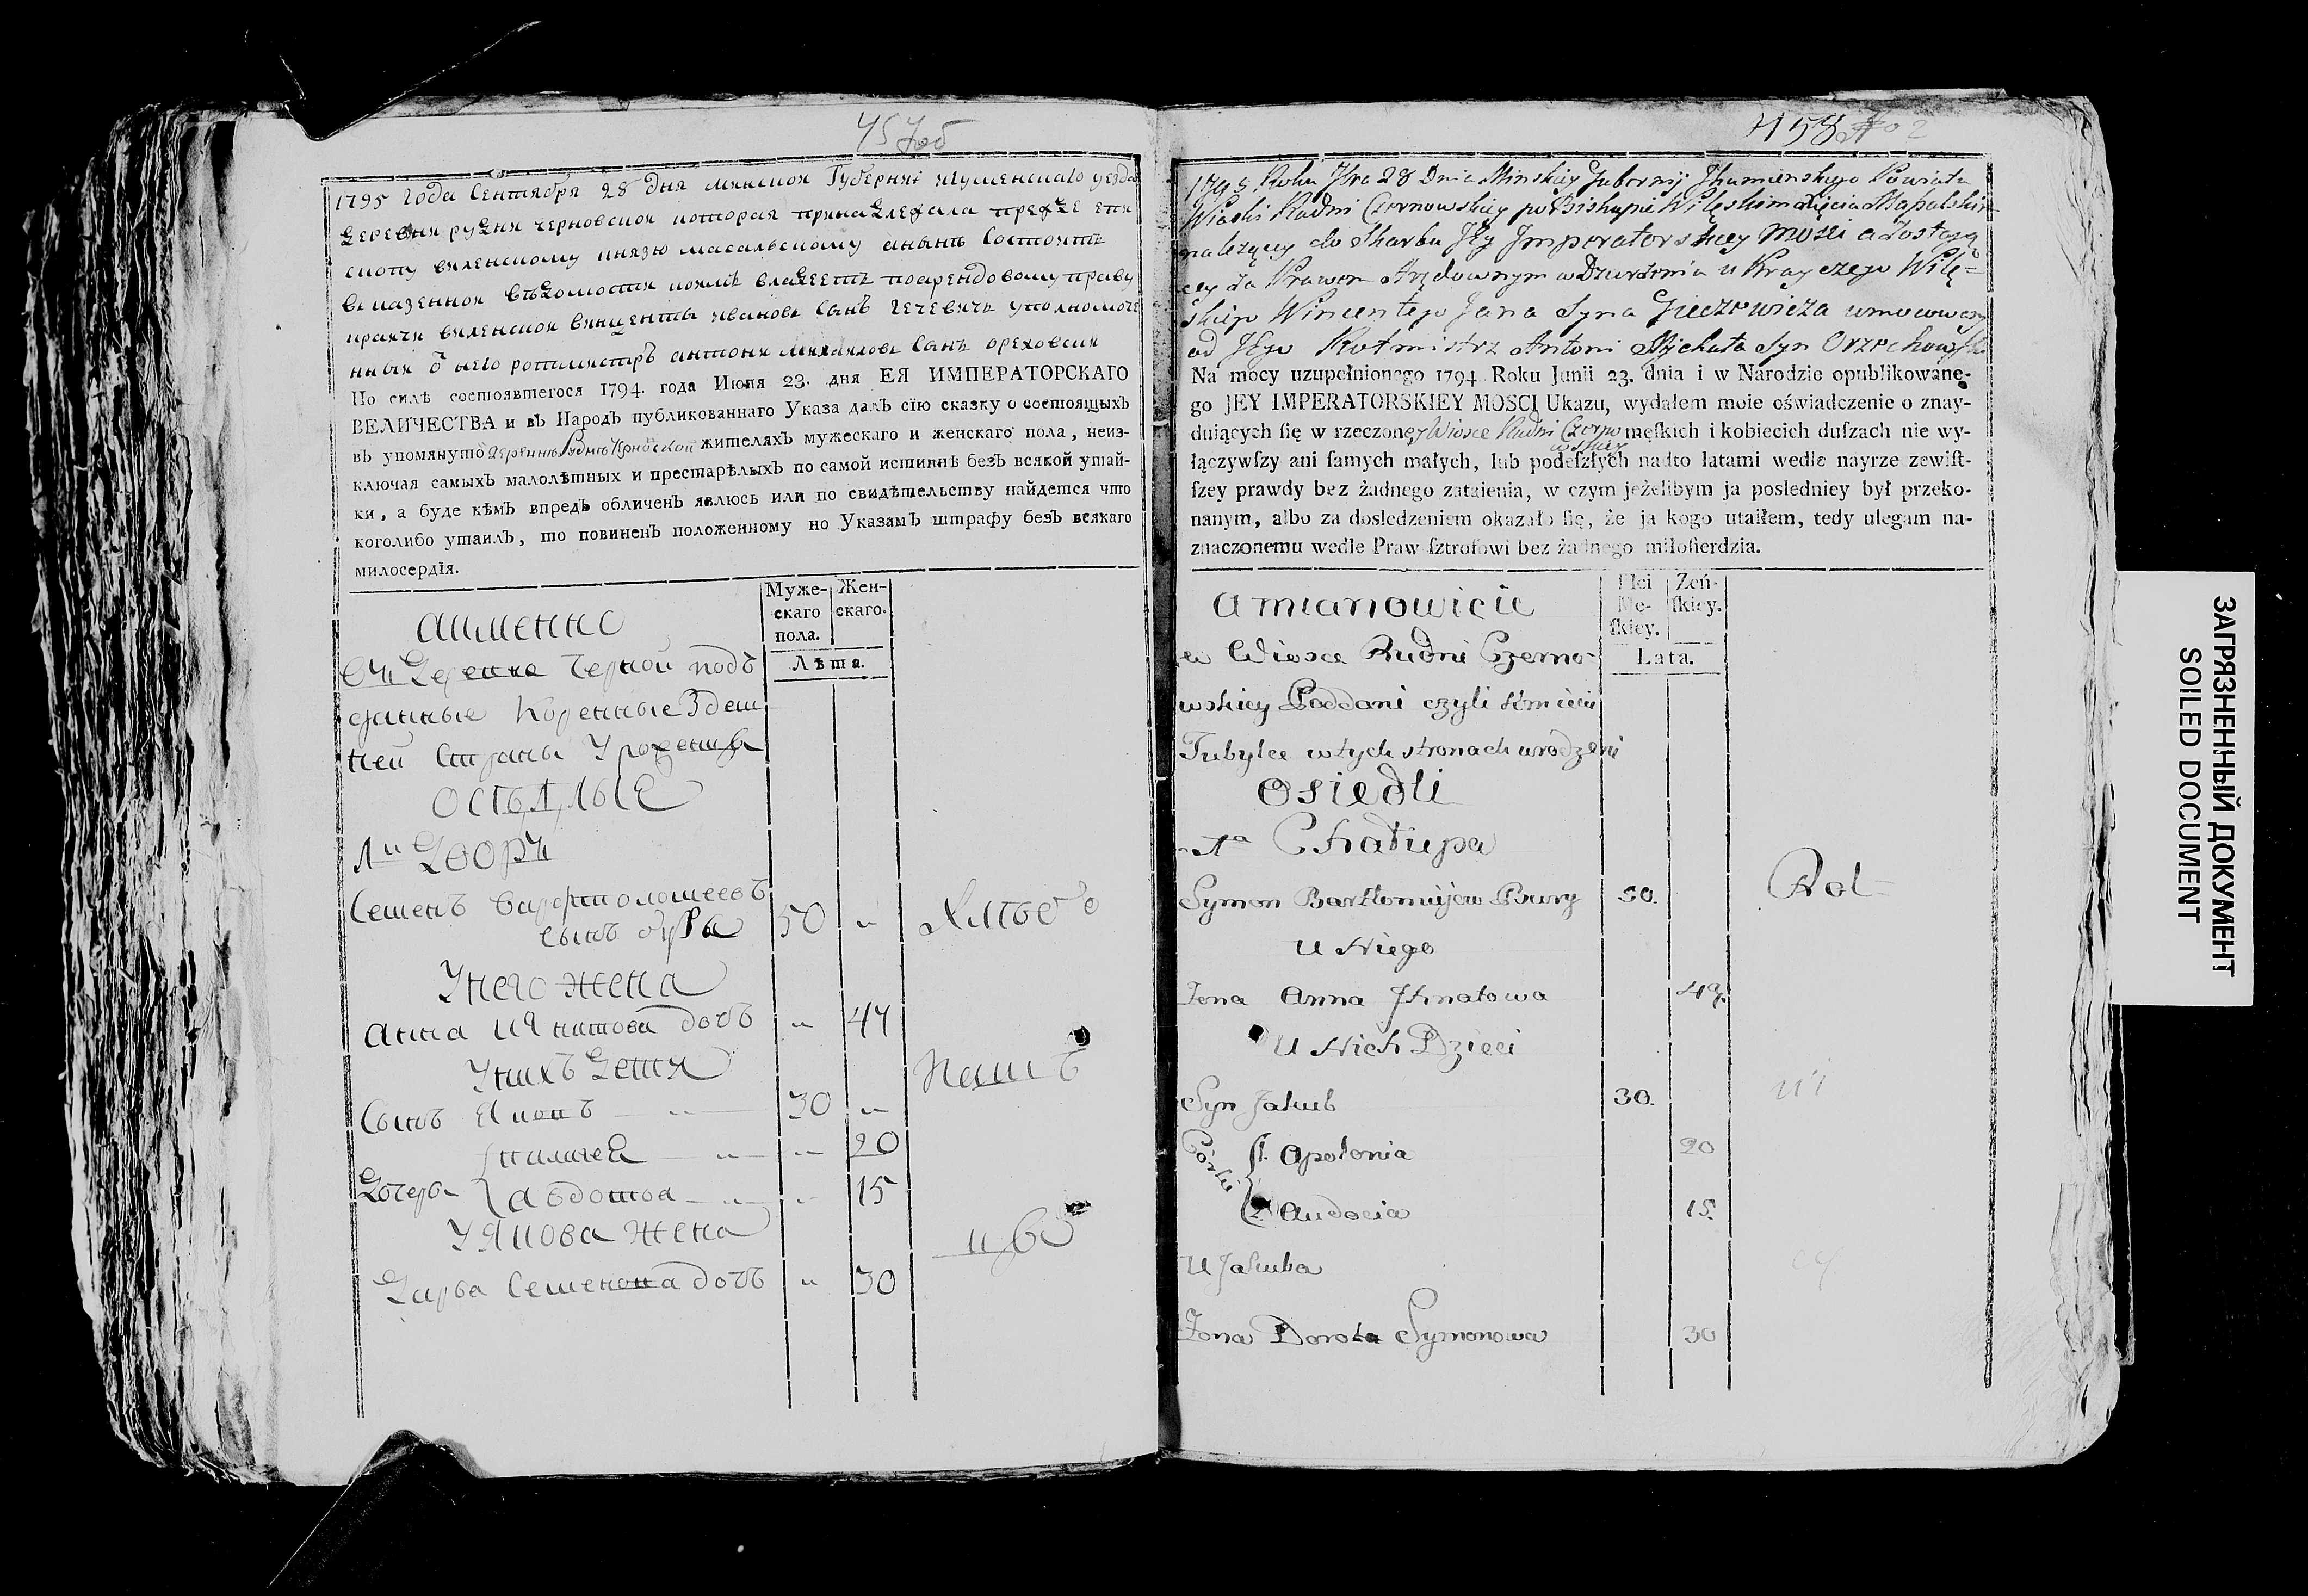 457об
1795 года Сентября 28 дня минской Губернии игуменскаго уезда
деревни рудни черновской которая принадлежала прежде епи
скопу виленскому князю масальскому анынѣ Состоитъ
в казенной вѣдомости коимѣ владеетъ поарендовому праву
крайчи виленской винценты иванов Сынъ гечевичь уполномоче
нный ѿ него ротмистръ антони михайлов Сынъ ореховски
По силѣ состоявшегося 1794. года Июня 23. дня ЕЯ ИМПЕРАТОРСКАГО
ВЕЛИЧЕСТВА и въ Народъ публикованнаго Указа далъ сїю сказку о состоящыхъ
въ упомянуто деревнѣ Руднѣ Чрнвской жителяхъ мужескаго и женскаго пола, неиз-
ключая самыхъ малолѣтныхъ и престарѣлыхъ по самой истиннѣ безъ всякой утай-
ки, а буде кѣмъ впредь обличенъ явлюсь или по свидѣтельству найдется что
коголибо утаилъ, то повиненъ положенному по Указамъ штрафу безъ всякаго
милосердїя.
Муже-скаго пола. Жен-скаго.
Лѣта.
аименно
Черной подъ
данные Коренные Здеш
ней Страны Уроженцы
осѣдлые
1й дворъ
Семенъ варфтоломеевъ
сынъ бура 50 „
Унего жена
анна Игнатова дочъ „ 44
Унихъ дети
Сынъ Якопъ — „ — 30 „
пилагея — „ — „ 20
Дочерь авдотъа — „ — „ 15
Уякова жена
Дарва Семенона дочъ „ 30
458 № 2
1795 Roku 7bra 28 Dnia Minskiey Gubernij Jhumenskiego Powiatu
Wioski Rudni Czernowskiey po Biskupie Wileńskim Xięcia Masalskim
należący do Skarbu Jey Imperatorskiey Mości a zostają
cey za Prawem Arędownym w Dzierżenia u Krayczego Wilę=
skiego Wincentego Jana Syna Gieczewicza umocowany
od Jego Rotmistrz Antoni Michała Syn Orzechowski
Na mocy uzupełnionego 1794 Roku Junii 23. dnia i w Narodzie opublikowane-
go JEY IMPERATORSKIEY MOSCI Ukazu, wydałem moie oświadczenie o znay-
duiących ſię w rzeczoney Wiosce Rudni Czerno wskiey męſkich i kobiecich duſzach nie wy-
łączywſzy ani ſamych małych, lub podeſzłych nadto latami wedle nayrze zewiſt-
ſzey prawdy bez żadnego zataienia, w czym jeżelibym ja posledniey był przeko-
nanym, albo za dosledzeniem okazało ſię, że ja kogo utaiłem, tedy ulegam na-
znaczonemu wedle Praw ſztrofowi bez żadnego miłoſierdzia.
Płci Mę-ſkiey. Żeń-ſkiey.
Lata.
a mianowicie
w Wiosce Rudni Czerno-
wskiey Poddani czyli Kmiecie
Tubylce w tych stronach urodzeni
Osiedli
1a Chałupa
Symon Bartłomiejow Bury 50.
U Niego
Żona Anna Jhnatowa 44.
U Nich Dzieci
Syn Jakub 30.
Córki 1. Apolonia 20
2 Audocia 15.
U Jakuba
Żona Dorota Symonowa 30
Rot
ЗАГРЯЗНЕННЫЙ ДОКУМЕНТ
SOILED DOCUMENT